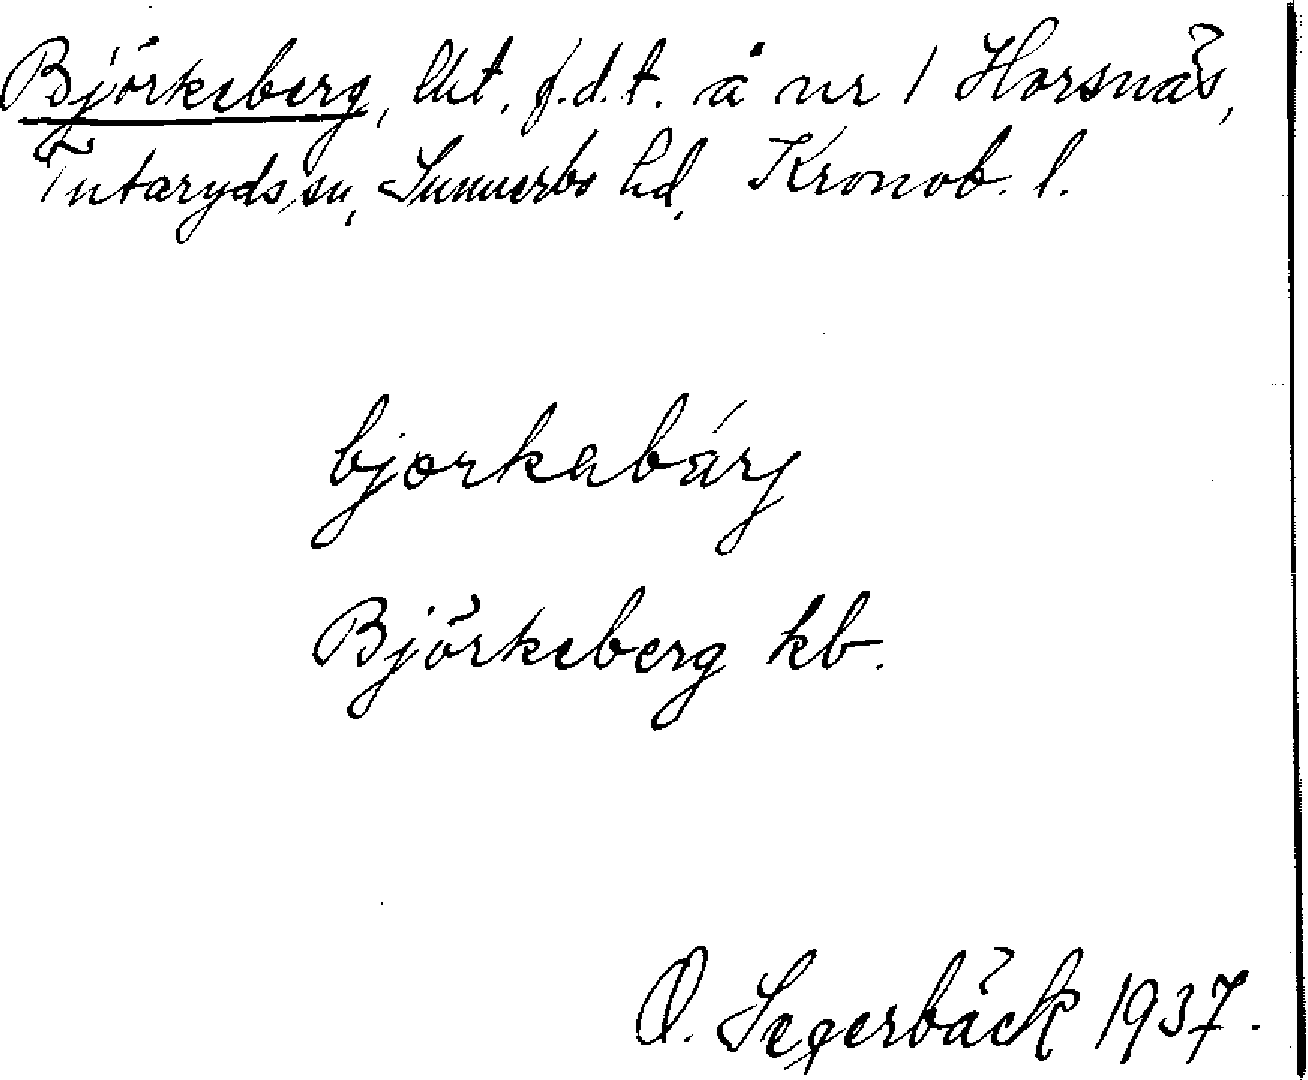 Björkeberg, lht, f.d.t. å nr 1 Horsnäs,
Tutaryds sn, Sunnerbo hd, Kronob. l.
bjorkabárj
Björkeberg kb.
O. Segerbäck 1937.